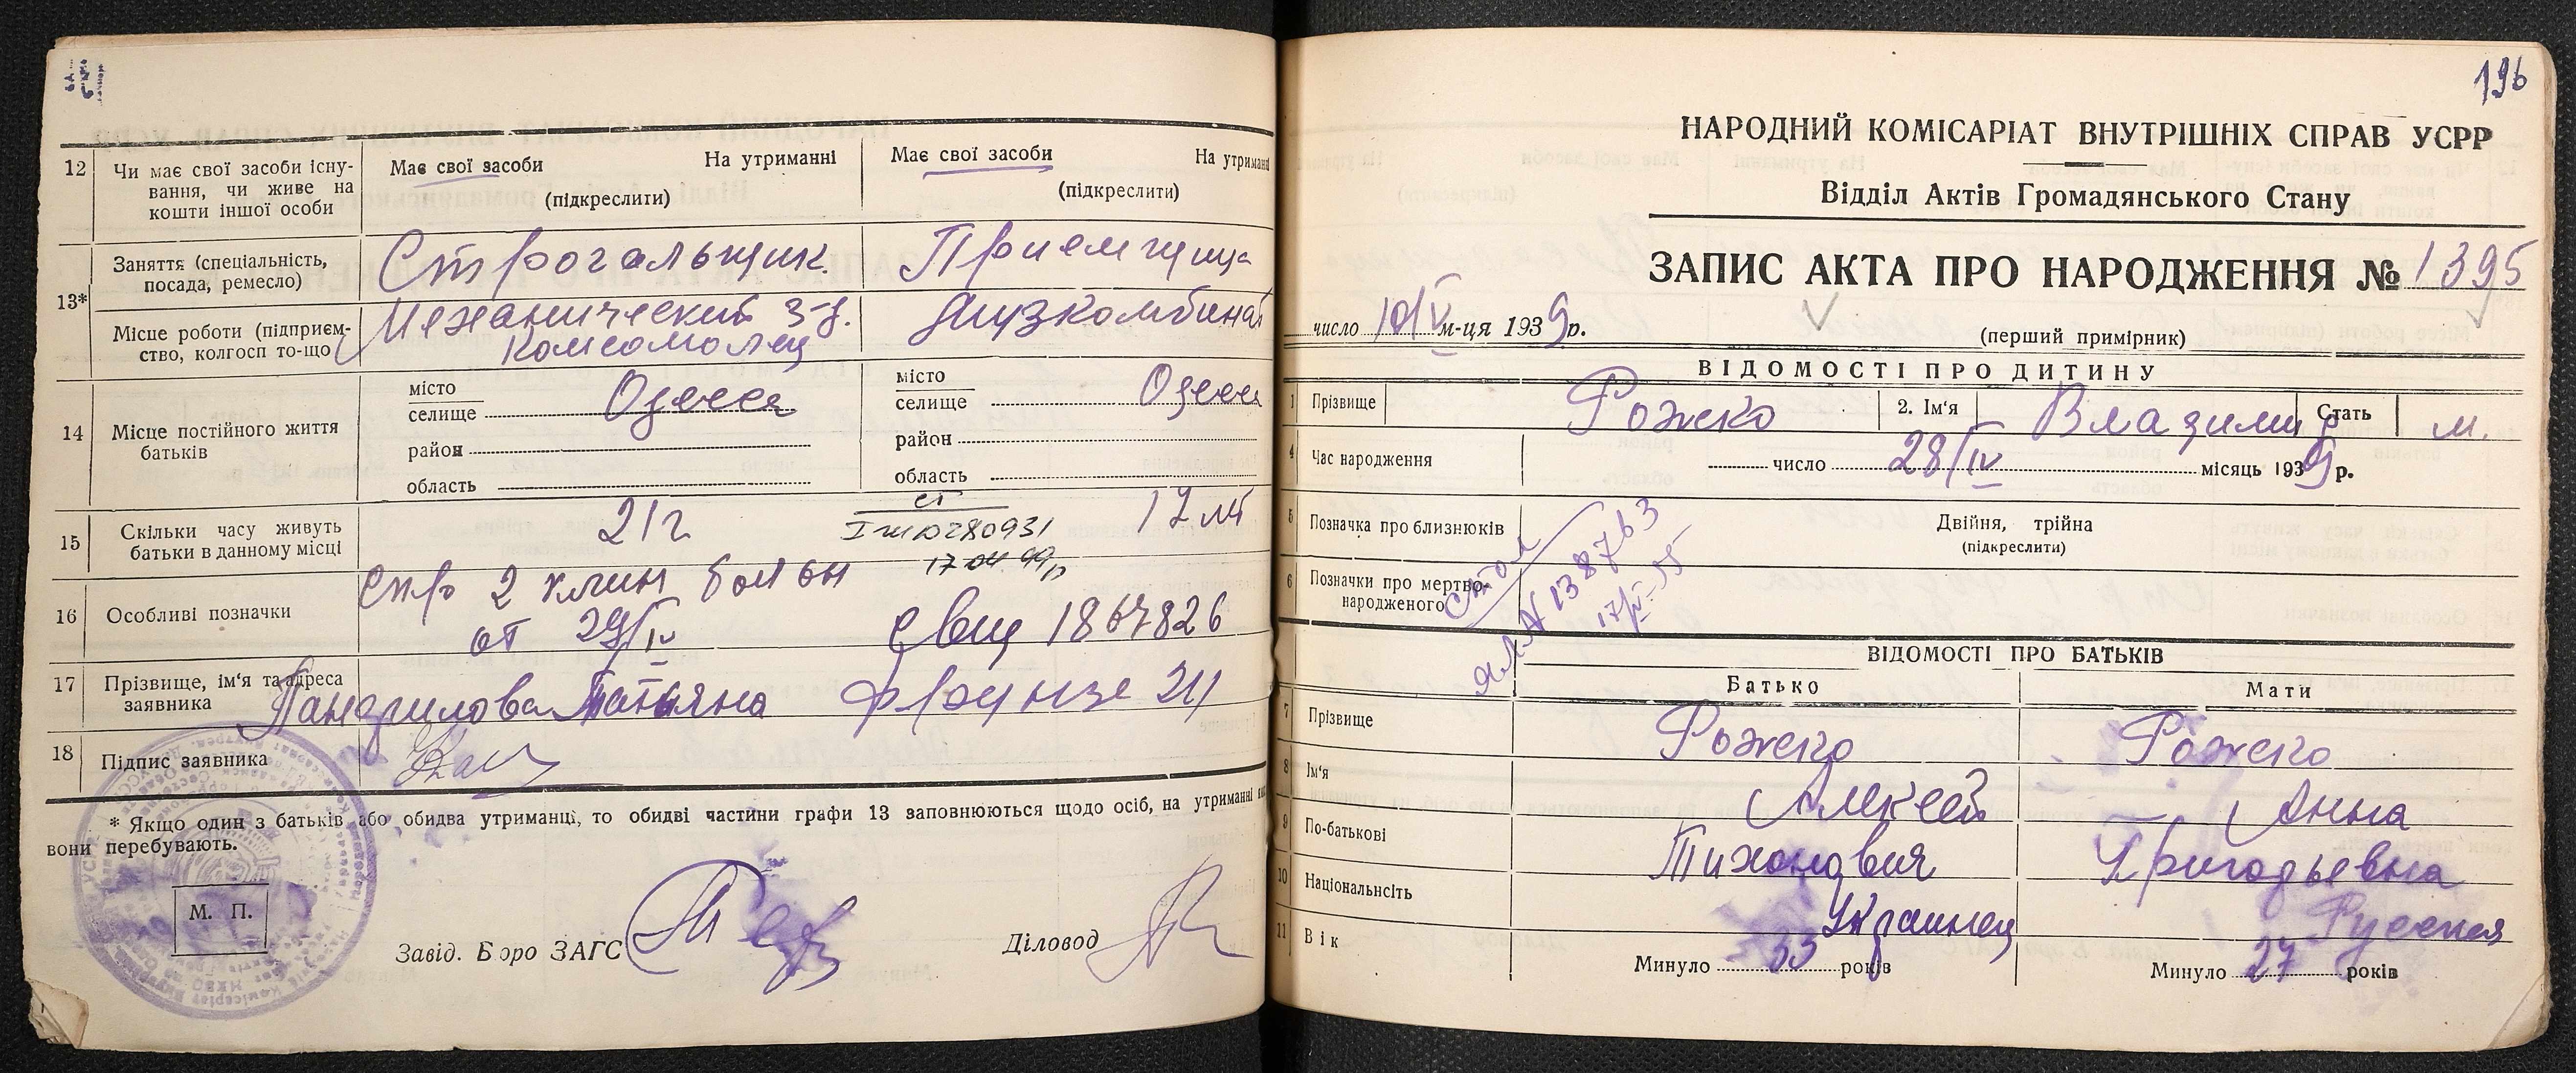 12
Чи має свої засоби існу-
вання, чи живе на
кошти іншої особи
Має свої засоби
На утриманні
(підкреслити)
Має свої засоби
На утриманні
(підкреслити)
13*
Заняття (спеціальність,
посада, ремесло)
Строгальщик.
Приемчица
Місце роботи (підприєм-
ство, колгосп то-що
Механический з-д.
Комсомолец
14
Місце постійного життя
батьків
місто
селище
Одесса
район
область
місто
селище
Одесса
район
область
15
Скільки часу живуть
батьки в данному місці
21 г
17 лт
280931
17 04 99р
16
Особливі позначки
спр 2 клин
от 29/IV
1867826
17
Прізвище, ім'я та адреса
заявника
Татьяна
Фрунзе
18
Підпис заявника
* Якщо один з батьків або обидва утриманці, то обидві частини графи 13 заповнюються щодо осіб, на утриманні
вони перебувають.
М. П.
Завід. Бюро ЗАГС
Діловод
196
НАРОДНИЙ КОМІСАРІАТ ВНУТРІШНІХ СПРАВ УСРР
Відділ Актів Громадянського Стану
ЗАПИС АКТА ПРО НАРОДЖЕННЯ № 1395
число 10/V м-ця 1939 р.
(перший примірник)
ВІДОМОСТІ ПРО ДИТИНУ
1 Прізвище Рожко 2. Ім'я Владимир Стать м.
4 Час народження число 28/IV місяць 1939 р.
5 Позначка про близнюків
Двійня, трійна
(підкреслити)
6 Позначки про мертво-
народженого
№ 138763
ВІДОМОСТІ ПРО БАТЬКІВ
Батько Мати
7 Прізвище Рожко Рожко
8 Ім'я Алексей Анна
9 По-батькові Тихонович
10 Національнсіть Украинец Русская
11 Вік Минуло 33 років Минуло 27 років